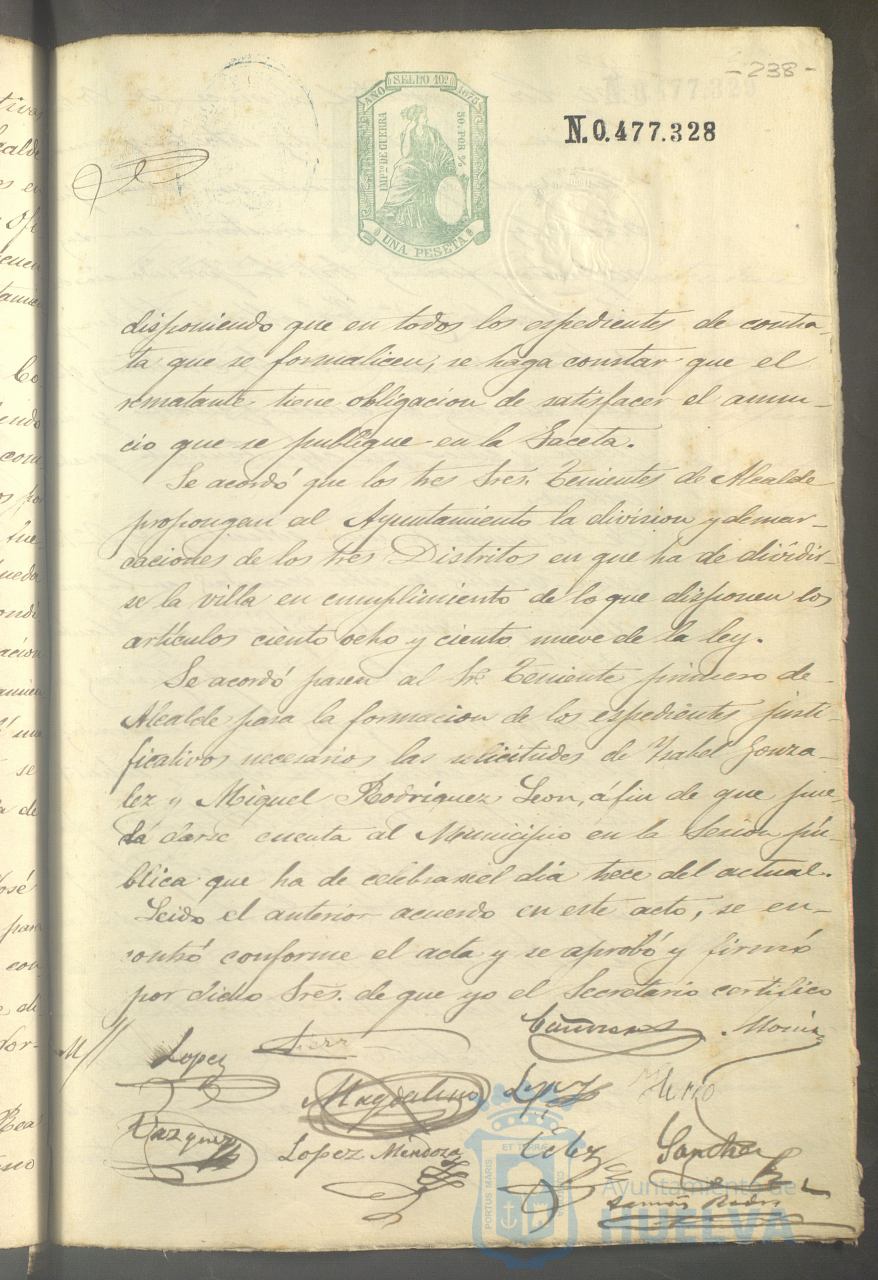 -238-
AÑO SELLO 10º 1876
IMPTO DE GUERRA
50 POR %
UNA PESETA
N.0.477.328
disponiendo que en todos los espedientes de contra-
ta que se formalicen, se haga constar que el
rematante tiene obligacion de satisfacer el anun-
cio que se publique en la Gaceta.
Se acordó que los tres Sres. Tenientes de Alcalde
propongan al Ayuntamiento la division y demar-
caciones de los tres Distritos en que ha de dividir-
se la villa en cumplimiento de lo que disponen los
artículos ciento ocho y ciento nueve de la ley.
Se acordó pasen al Sr. Teniente primero de
Alcalde para la formacion de los espedientes justi-
ficativos necesarios las solicitudes de Ysabel Gonza-
lez y Miguel Rodriguez Leon, á fin de que pue-
da darse cuenta al Municipio en la Sesion pú-
blica que ha de celebrarse el dia trece del actual.
Leido el anterior acuerdo en este acto, se en-
contró conforme el acta y se aprobó y firmó
por dichos Sres. de que yo el Secretario certifico
Lopez
Magdaleno Lopez
Vazquez Lopez Mendoza Sanchez
PORTUS MARIS ET TERRAE CUSTODIO
Ayuntamiento de
HUELVA